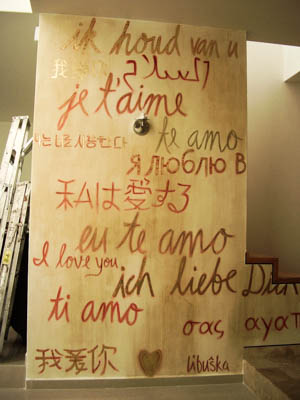 ik houd van u
我
je t'aime
te amo
Я ЛЮБЛЮ В
私は愛する
eu te amo
I love you
ich liebe Dich
ti amo
σας αγαπ
我爱你
libuška